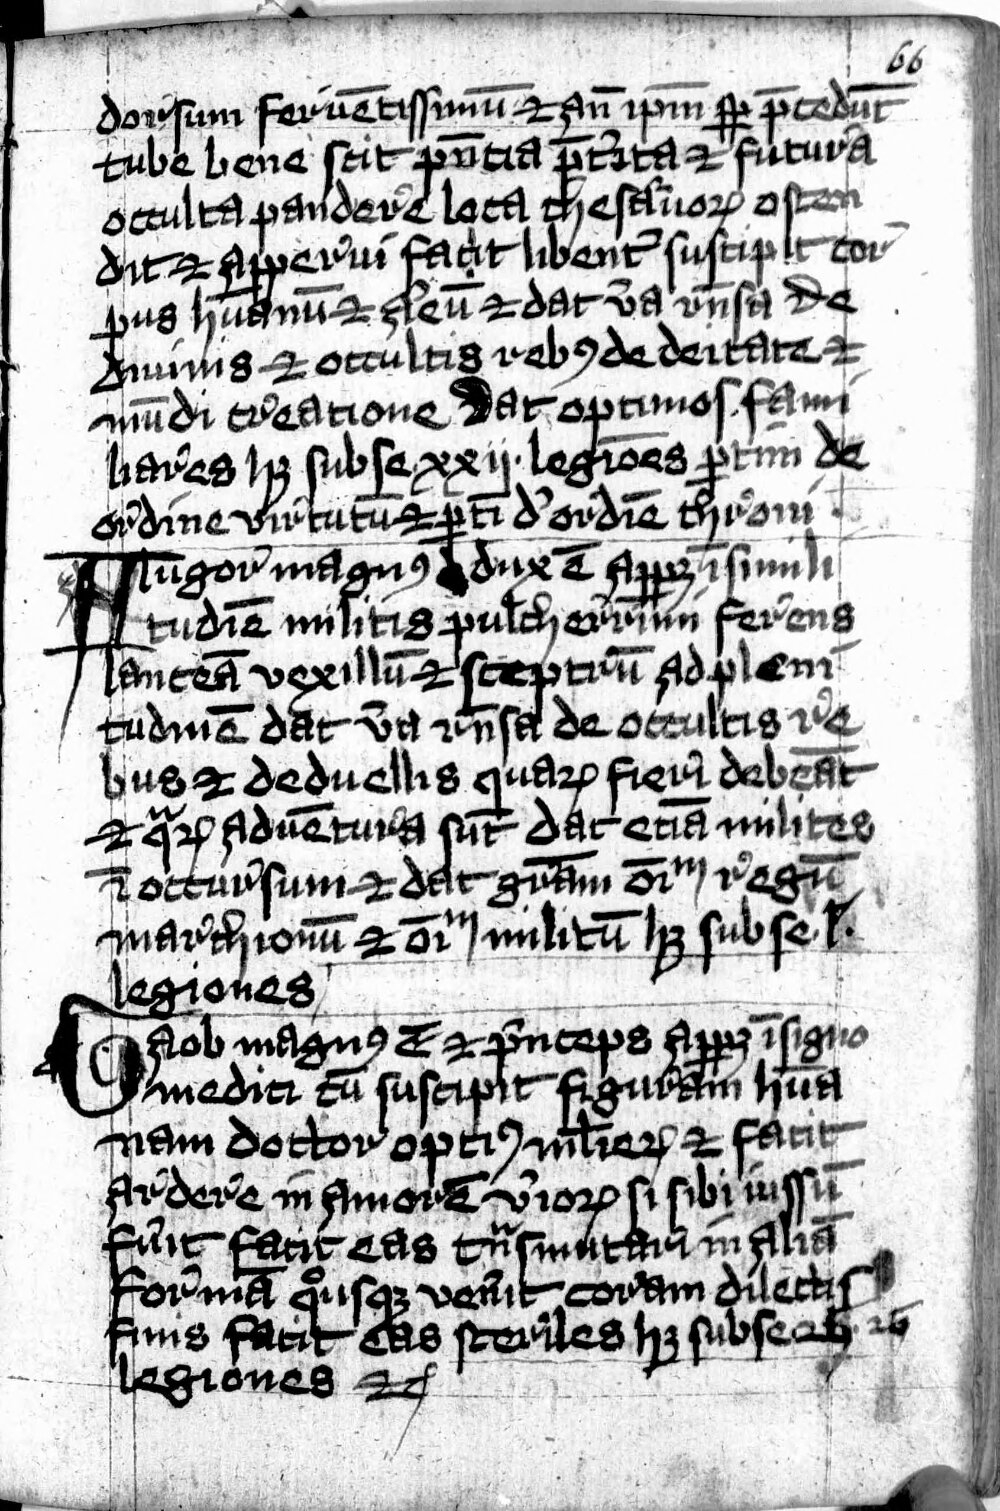 66
dorsum feruētissimū et añ ip̄m sꝑ p̄cedūt
tube bene scit p̄ñtia p̄t̾ita et futura
occulta pandere loca thesauroꝝ osten
dit et apperiri facit libent̾ suscipit cor
pus hūanū et aereū et dat v̄a rñsa De
diuinis et occultis rebꝰ de deitate et
mūdi creatione Dat optimos fami
liares hꝫ sub se xxij legiōes ꝑtim de
ordine virtutū et ꝑti d̾ ordīe throni
lugor magnꝰ dux ē appꝫ ī simili
tudīe militis pulcherrimi ferens
lanceā vexillū et sceptrū ad pleni
tudinē dat v̄a rñsa de occultis re
bus et de duellis quaꝝ fieri debeāt
et qᵃꝝ aduētura sūt dat etiā milites
ī occursum et dat grām oīᵐ regū
marchionū et oīᵐ militū hꝫ sub se l.
legiones
Gaob magnꝰ ē et p̄nceps appꝫ ī signo
medici cū suscipit figuram hūa
nam doctor optīꝰ ml̄ieꝝ et facit
ardere in amorē viroꝝ si sibi iussū
fu̾it facit eas tᵃnsmutari in aliā
formā qͦusqꝫ ven̾it coram dilectis
finis facit eas steriles hꝫ sub se 26 26
legiones etc